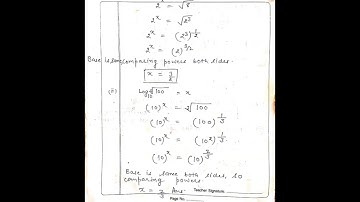 2^x = √8
2^x = √2³
2^x = (2³)^1/2
2^x = (2)^3/2
comparing powers both sides.
x = 3/2
(ii) Log₁₀ ∛100 = x
(10)^x = ∛100
(10)^x = (100)^1/3
(10)^x = (10²)^1/3
(10)^x = (10)^2/3
Base is same both sides, so
comparing powers
x = 2/3 Ans
Teacher Signature
Page No.